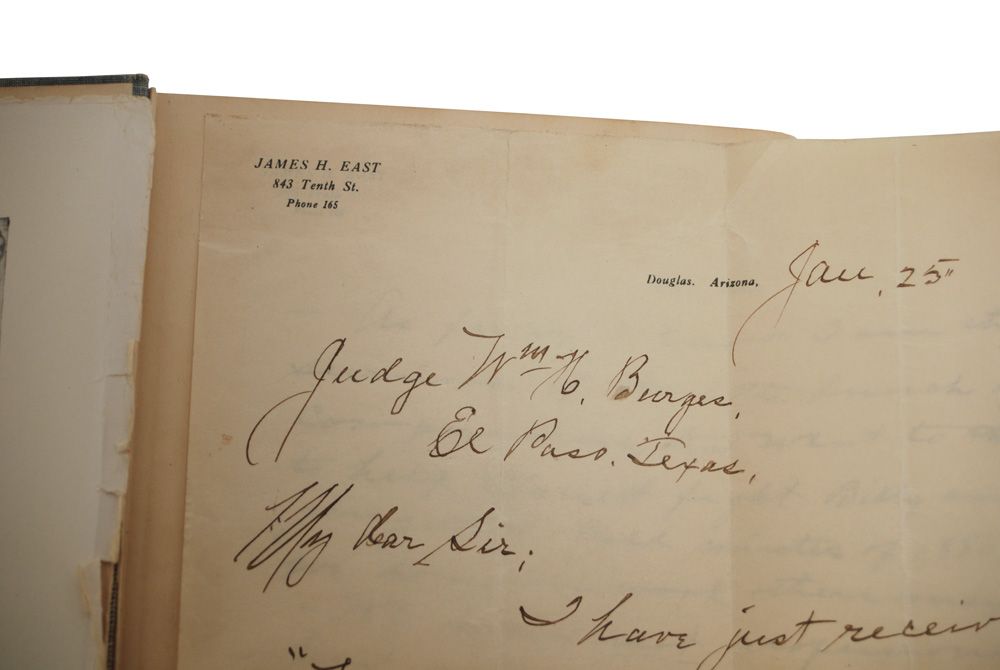 JAMES H. EAST
843 Tenth St.
Phone 165
Douglas. Arizona, Jan, 25"
Judge Wm H. Burges,
El Paso. Texas,
My dear Sir;
I have just receiv
"